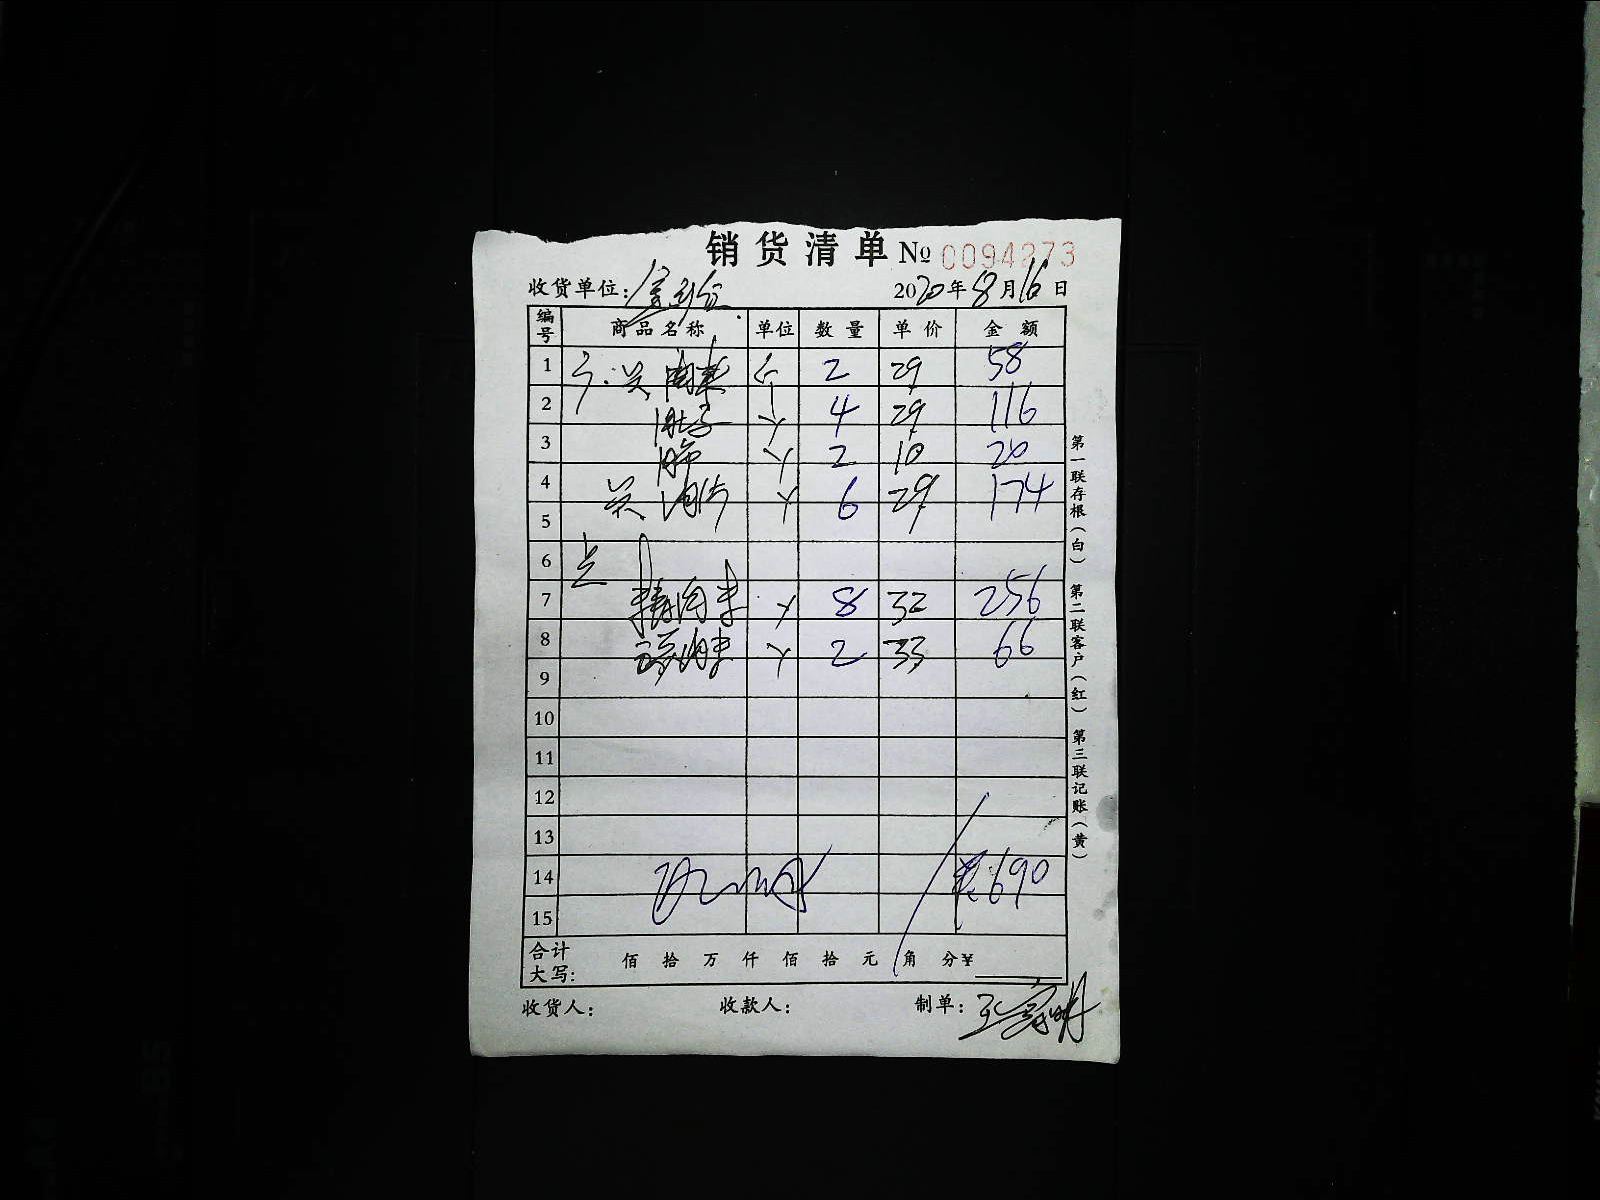 销货清单 № 0094273
收货单位: 2020年8月16日
编号 商品名称 单位 数量 单价 金额
1 个 2 29 58
2 肚子 4 29 116
3 肺 2 10 20
4 6 29 174
5
6
7 精肉 8 32 256
8 2 33 66
9
10
11
12
13
14 ¥690
15
合计大写: 佰 拾 万 仟 佰 拾 元 角 分¥
收货人: 收款人: 制单:
第一联存根(白) 第二联客户(红) 第三联记账(黄)